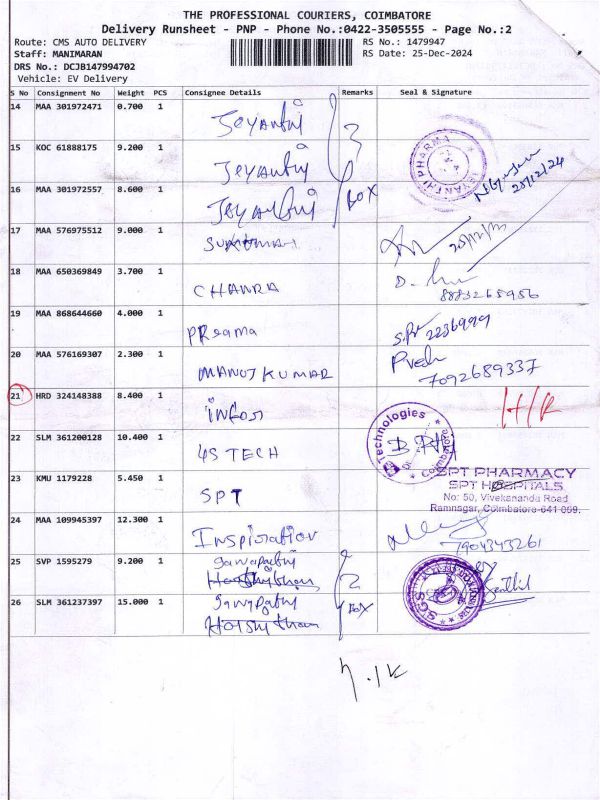 THE PROFESSIONAL COURIERS, COIMBATORE
Delivery Runsheet - PNP - Phone No.:0422-3505555 - Page No.:2
Route: CMS AUTO DELIVERY
RS No.: 1479947
Staff: MANIMARAN
RS Date: 25-Dec-2024
DRS No.: DCJB147994702
Vehicle: EV Delivery
S No Consignment No Weight PCS Consignee Details Remarks Seal & Signature
14 MAA 301972471 0.700 1 Jeyanthi 3
15 KOC 61888175 9.200 1 Jeyanthi JEYANTHI PHARMA
16 MAA 301972557 8.600 1 Jeyanthi BOX 25/12/24
17 MAA 576975512 9.000 1
18 MAA 650369849 3.700 1 CHANRA 8883265986
19 MAA 868644660 4.000 1 PRsama 2236999
20 MAA 576169307 2.300 1 MANOJ KUMAR 7092689337
21 HRD 324148388 8.400 1 infos H/R
22 SLM 361200128 10.400 1 4S TECH Technologies
23 KMU 1179228 5.450 1 SPT SPT PHARMACY
SPT HOSPITALS
No: 50, Vivekananda Road
Ramnagar, Coimbatore-641 009.
24 MAA 109945397 12.300 1 Inspiration 7904343261
25 SVP 1595279 9.200 1 Ganapathy 2
26 SLM 361237397 15.000 1 BOX SGS Senthil